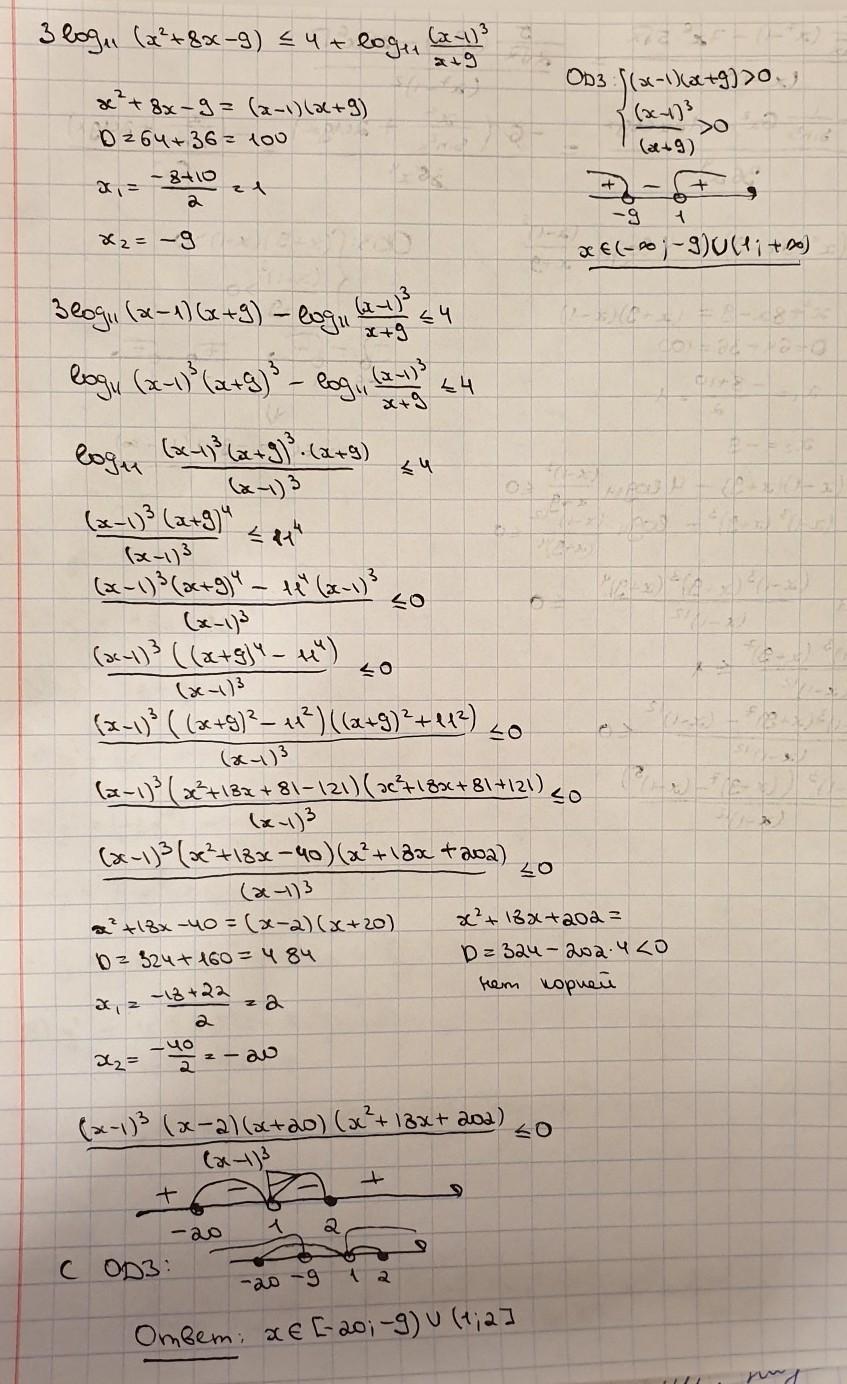 3log₁₁ (x²+8x-9) ≤ 4 + log₁₁ (x-1)³/(x+9)
x²+8x-9 = (x-1)(x+9)
D = 64+36 = 100
x₁ = (-8+10)/2 = 1
x₂ = -9
ОДЗ: {(x-1)(x+9)>0
(x-1)³/(x+9) >0
+ - +
-9 1
x∈(-∞;-9)∪(1;+∞)
3log₁₁ (x-1)(x+9) - log₁₁ (x-1)³/(x+9) ≤ 4
log₁₁ (x-1)³(x+9)³ - log₁₁ (x-1)³/(x+9) ≤ 4
log₁₁ (x-1)³(x+9)³·(x+9)/(x-1)³ ≤ 4
(x-1)³(x+9)⁴/(x-1)³ ≤ 11⁴
((x-1)³(x+9)⁴ - 11⁴(x-1)³)/(x-1)³ ≤0
(x-1)³((x+9)⁴ - 11⁴)/(x-1)³ ≤0
(x-1)³((x+9)² - 11²)((x+9)² + 11²)/(x-1)³ ≤0
(x-1)³(x²+18x+81-121)(x²+18x+81+121)/(x-1)³ ≤0
(x-1)³(x²+18x-40)(x²+18x+202)/(x-1)³ ≤0
x²+18x-40 = (x-2)(x+20)
D = 324+160 = 484
x₁ = (-18+22)/2 = 2
x₂ = -40/2 = -20
x²+18x+202 =
D = 324 - 202·4 <0
нет корней
(x-1)³(x-2)(x+20)(x²+18x+202)/(x-1)³ ≤0
+ - - +
-20 1 2
С ОДЗ:
-20 -9 1 2
Ответ: x∈[-20;-9)∪(1;2]